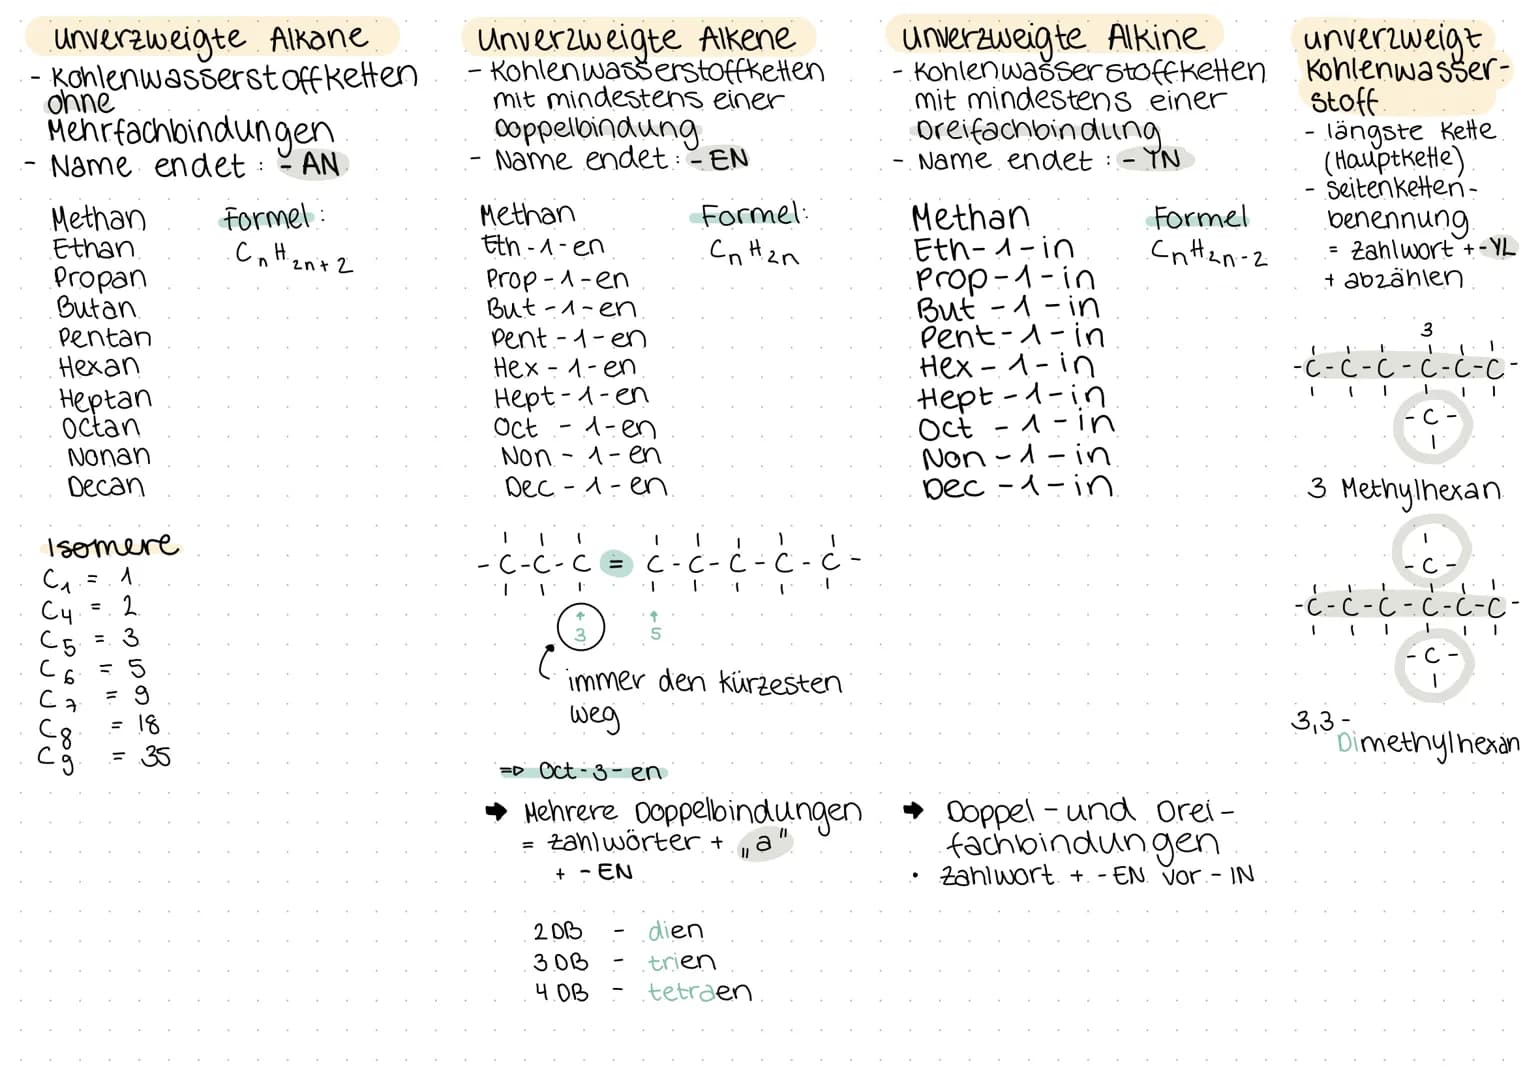 unverzweigte Alkane
- Kohlenwasserstoffketten
ohne
Mehrfachbindungen
- Name endet : - AN
Methan
Ethan
Propan
Butan
Pentan
Hexan
Heptan
Octan
Nonan
Decan
Formel :
CnH2n+2
Isomere
C1 = 1
C4 = 2
C5 = 3
C6 = 5
C7 = 9
C8 = 18
C9 = 35
unverzweigte Alkene
- Kohlenwasserstoffketten
mit mindestens einer
Doppelbindung
- Name endet : - EN
Methan
Eth-1-en
Prop-1-en
But-1-en
Pent-1-en
Hex-1-en
Hept-1-en
Oct-1-en
Non-1-en
Dec-1-en
Formel:
CnH2n
-C-C-C=C-C-C-C-C-
3 5
immer den kürzesten
weg
=> Oct-3-en
➜ Mehrere Doppelbindungen
= Zahlwörter + „a"
+ - EN
2 DB - dien
3 DB - trien
4 DB - tetraen
unverzweigte Alkine
- Kohlenwasserstoffketten
mit mindestens einer
Dreifachbindung
- Name endet : - YN
Methan
Eth-1-in
Prop-1-in
But-1-in
Pent-1-in
Hex-1-in
Hept-1-in
Oct-1-in
Non-1-in
Dec-1-in
Formel
CnH2n-2
➜ Doppel-und Drei-
fachbindungen
• Zahlwort + - EN vor - IN
unverzweigt
Kohlenwasser-
stoff
- längste Kette
(Hauptkette)
- Seitenketten-
benennung
= Zahlwort + -YL
+ abzählen
3
-C-C-C-C-C-C-
-C-
3 Methylhexan
-C-
-C-C-C-C-C-C-
-C-
3,3-
Dimethylhexan